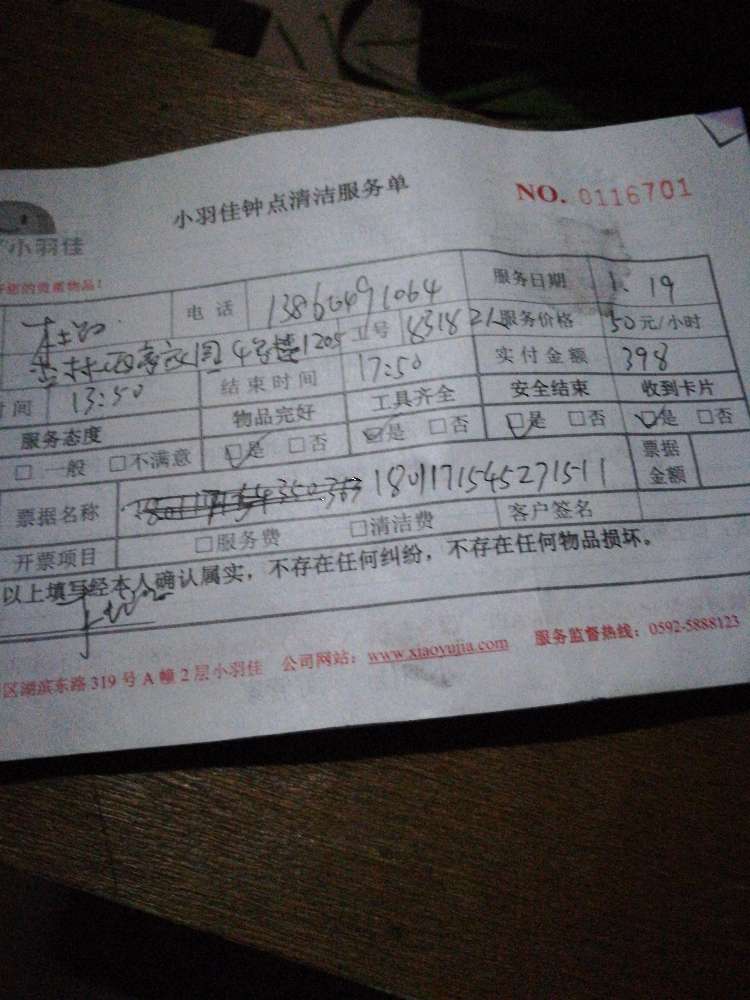 小羽佳钟点清洁服务单 NO. 0116701
小羽佳
电话 服务日期 1. 19
4号楼1205 工号 831821 服务价格 50元/小时
时间 13:50 结束时间 17:50 实付金额 398
服务态度 物品完好 工具齐全 安全结束 收到卡片
□一般 □不满意 □是 □否 □是 □否 □是 □否 □是 □否
票据名称 18011715452715-11 票据金额
开票项目 □服务费 □清洁费 客户签名
以上填写经本人确认属实，不存在任何纠纷，不存在任何物品损坏。
区湖滨东路319号A幢2层小羽佳 公司网站：www.xiaoyujia.com 服务监督热线：0592-5888123